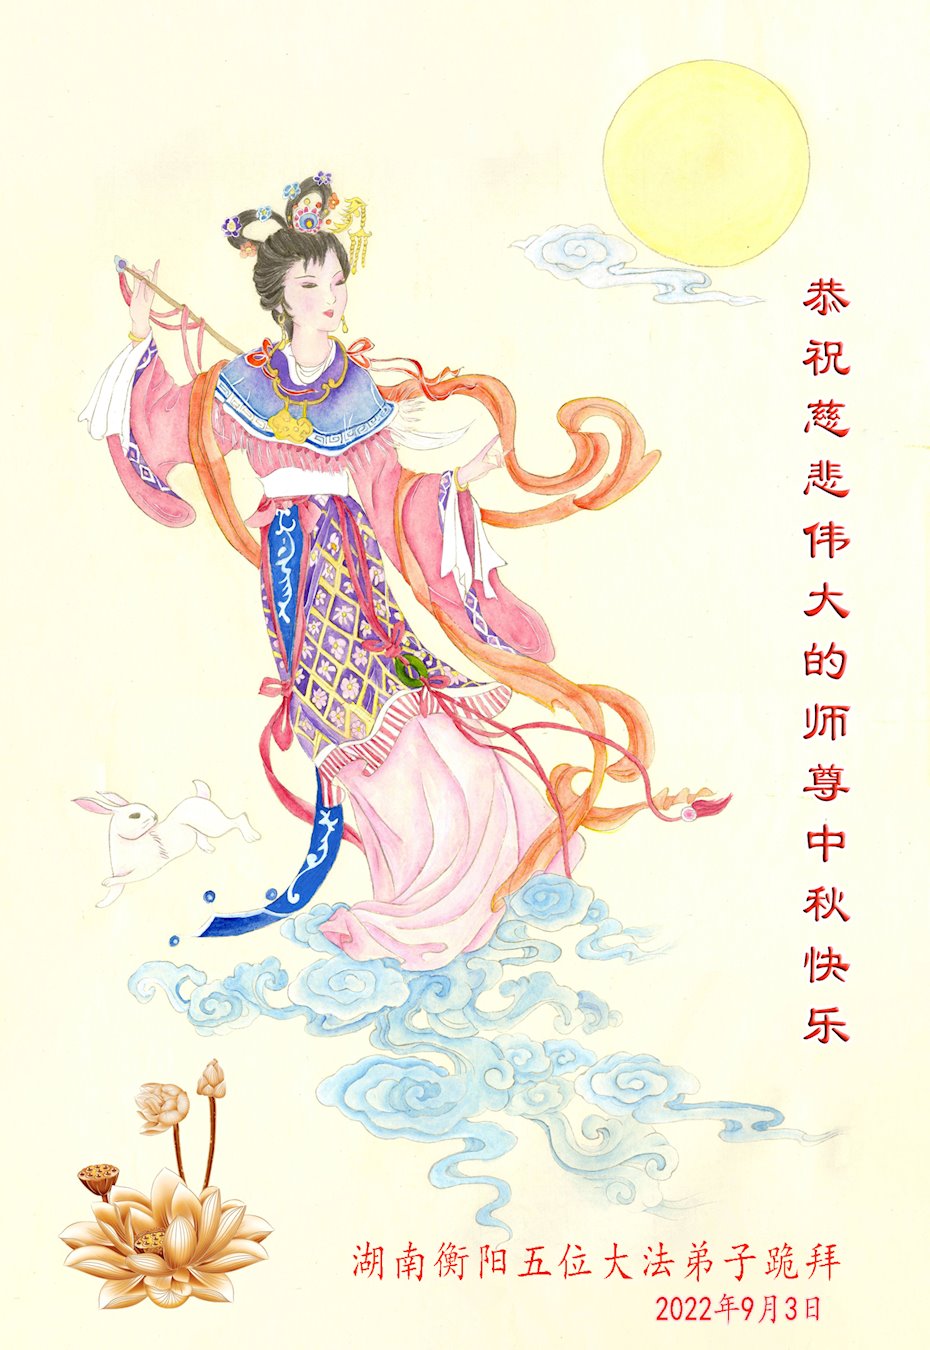 恭祝慈悲伟大的师尊中秋快乐
湖南衡阳五位大法弟子跪拜
2022年9月3日